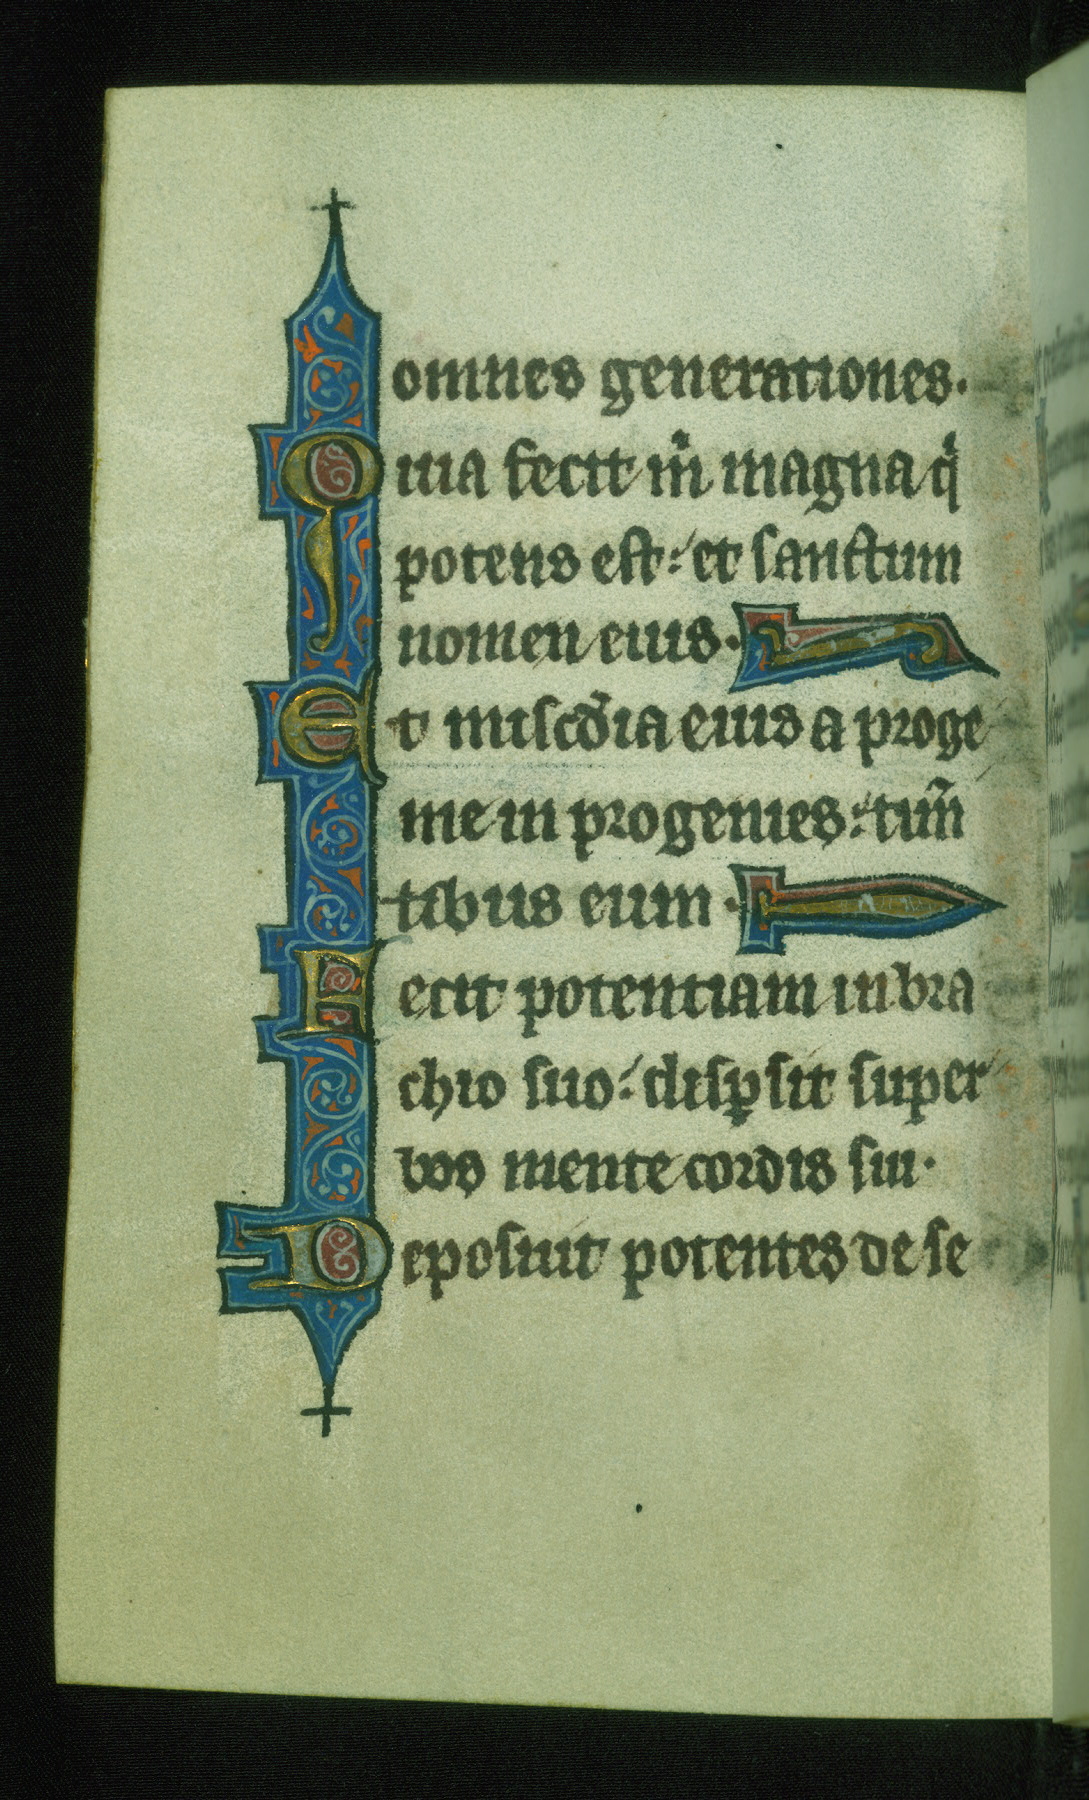 omnes generationes.
Quia fecit m̅ magna qͥ
potens est: et sanctum
nomen eius.
Et misc̅dia eius a proge
nie in progenies: tim̅
tibus eum.
Fecit potentiam in bra
chio suo: disp̱sit super
bos mente cordis sui.
Deposuit potentes de se